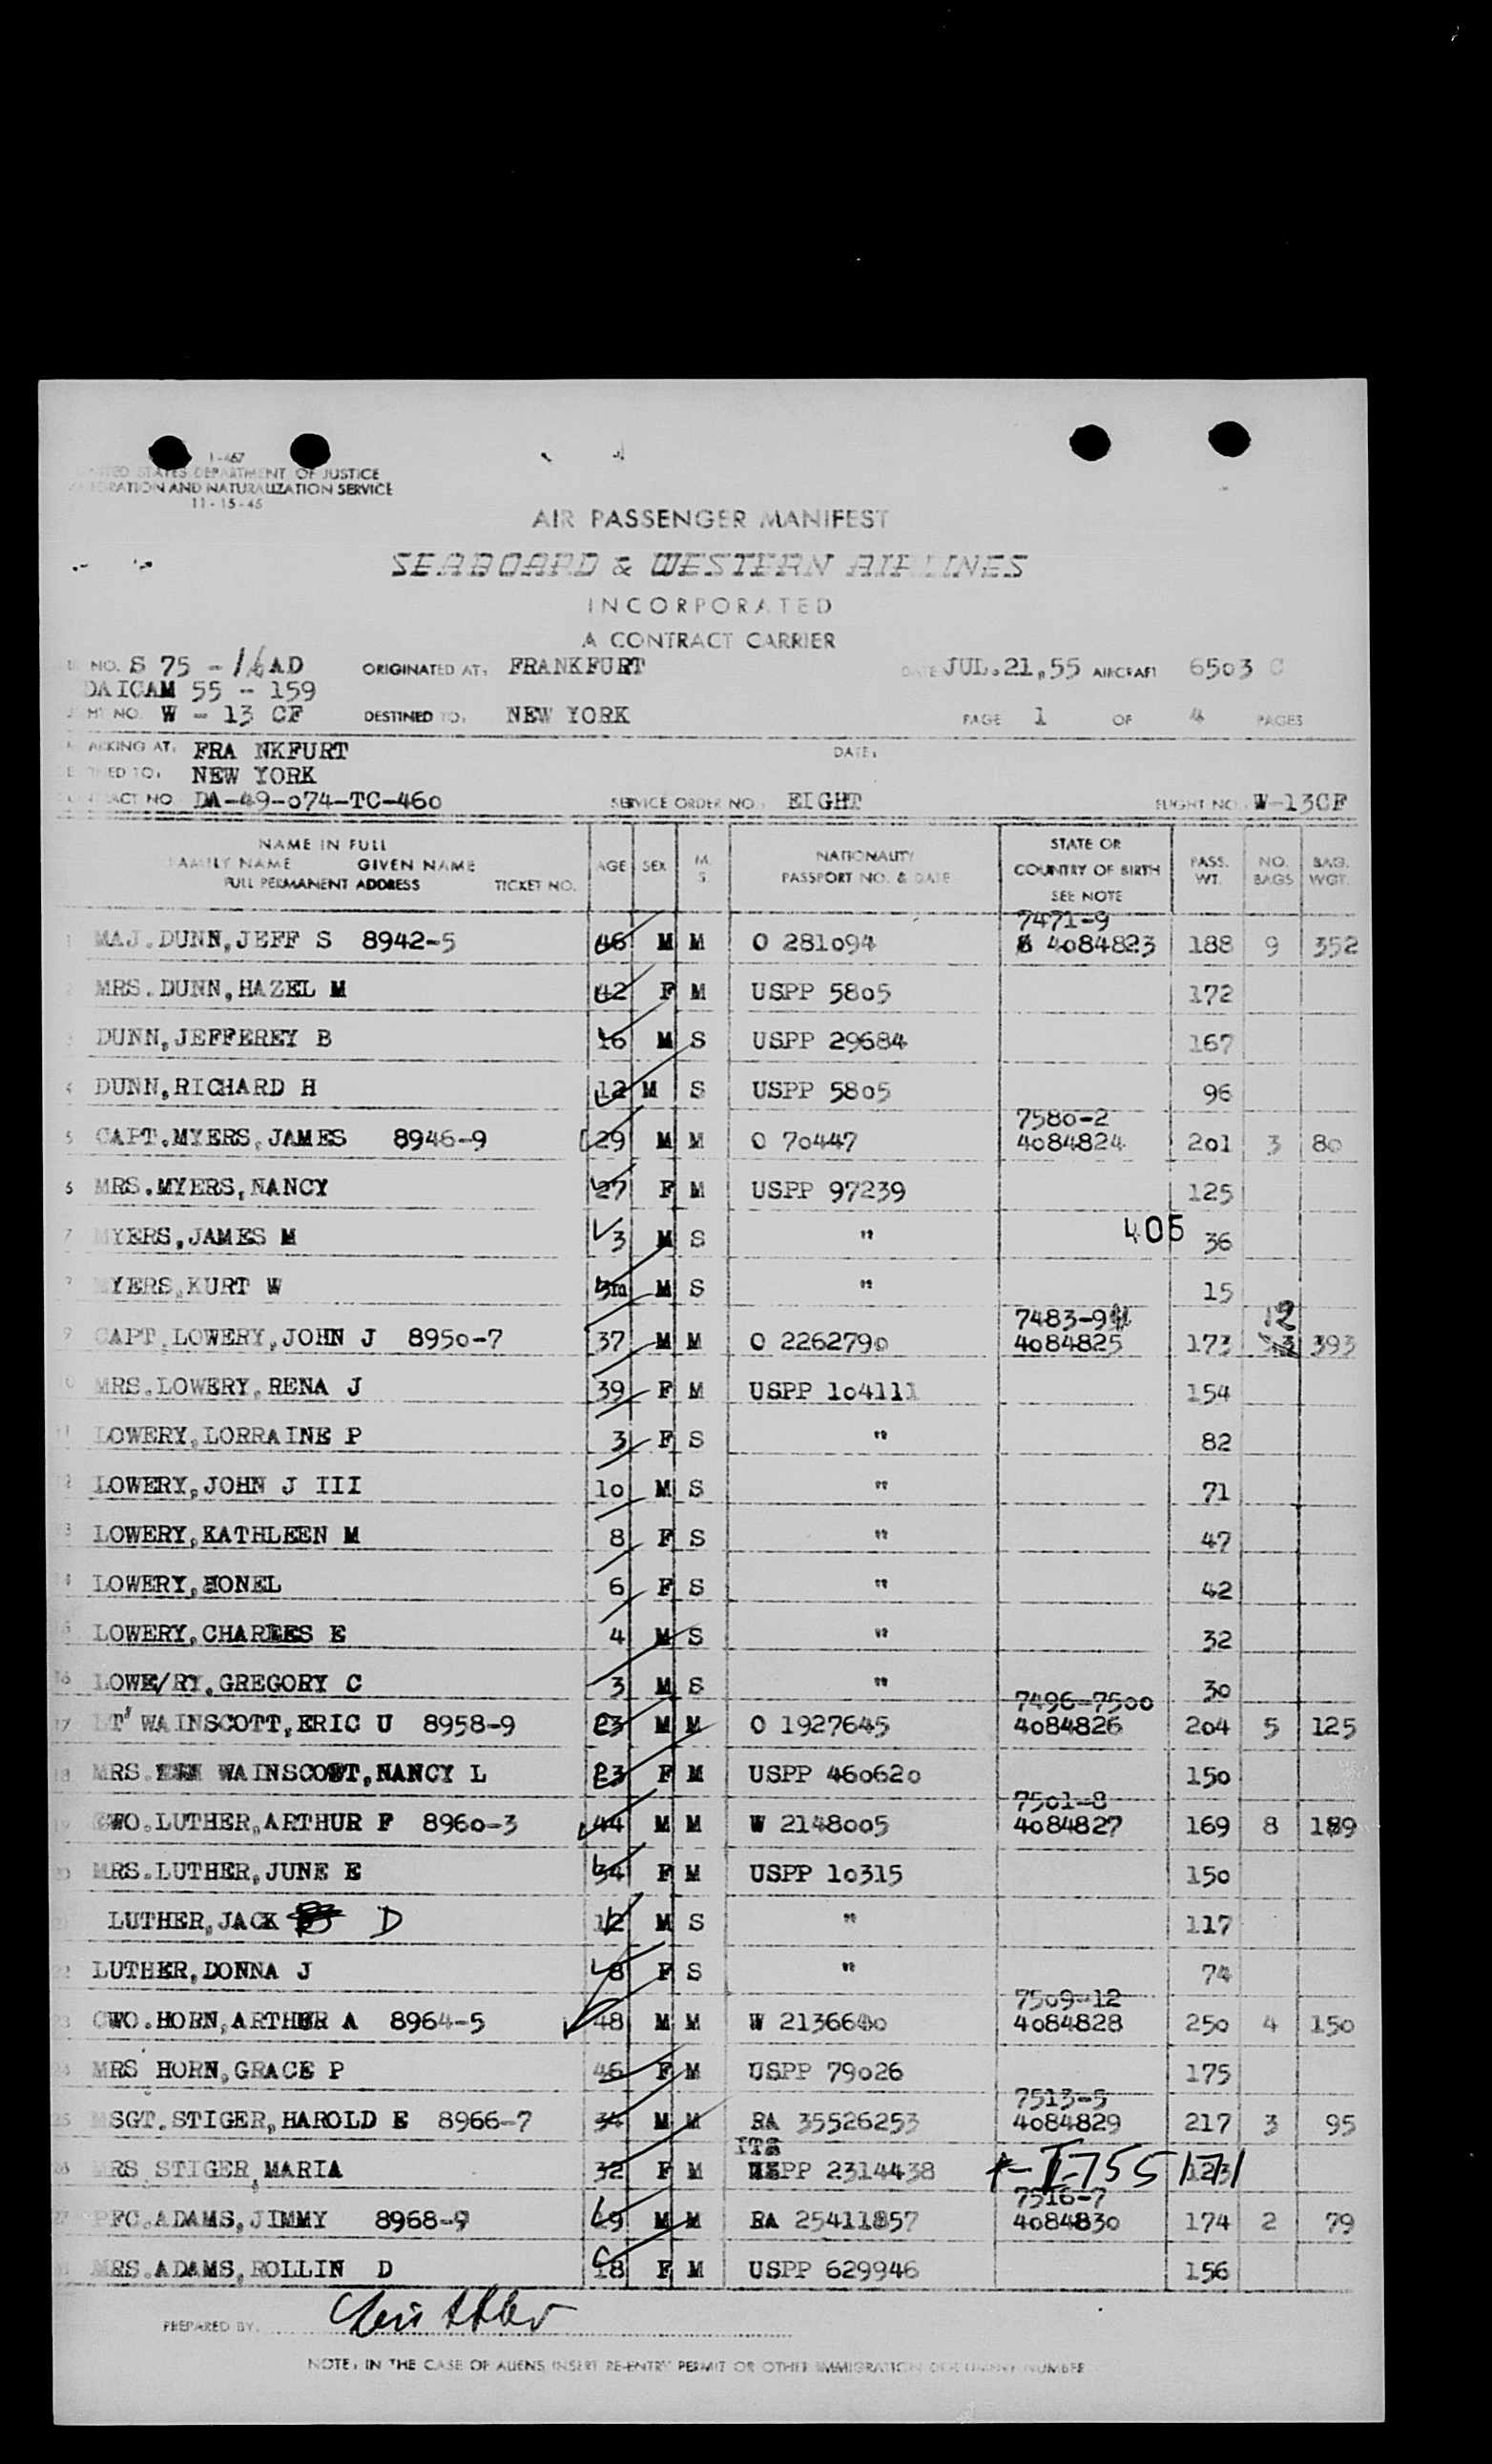 I-467
UNITED STATES DEPARTMENT OF JUSTICE
IMMIGRATION AND NATURALIZATION SERVICE
11-15-45
AIR PASSENGER MANIFEST
SEABOARD & WESTERN AIRLINES
INCORPORATED
A CONTRACT CARRIER
NO. S 75 - 16 AD ORIGINATED AT: FRANKFURT DATE JUL.21,55 AIRCRAFT 6503 C
DAICAM 55 - 159
NO. W - 13 CF DESTINED TO: NEW YORK PAGE 1 OF 4 PAGES
EMBARKING AT: FRA NKFURT DATE:
DESTINED TO: NEW YORK
CONTRACT NO DA-49-074-TC-460 SERVICE ORDER NO. EIGHT FLIGHT NO. W-13CF
NAME IN FULL
FAMILY NAME GIVEN NAME
FULL PERMANENT ADDRESS TICKET NO. AGE SEX M. S. NATIONALITY PASSPORT NO. & DATE STATE OR COUNTRY OF BIRTH SEE NOTE PASS. WT. NO. BAGS BAG. WGT.
7471-9
1 MAJ.DUNN,JEFF S 8942-5 46 M M O 281094 4084823 188 9 352
2 MRS.DUNN,HAZEL M 42 F M USPP 5805 172
3 DUNN,JEFFEREY B 16 M S USPP 29684 167
4 DUNN,RICHARD H 12 M S USPP 5805 96
7580-2
5 CAPT.MYERS,JAMES 8946-9 29 M M O 70447 4084824 201 3 80
6 MRS.MYERS,NANCY 27 F M USPP 97239 125
7 MYERS,JAMES M 3 M S " 405 36
MYERS,KURT W M S " 15
7483-94 12
9 CAPT.LOWERY,JOHN J 8950-7 37 M M O 2262790 4084825 173 393
10 MRS.LOWERY,RENA J 39 F M USPP 104111 154
11 LOWERY,LORRAINE P 3 F S " 82
12 LOWERY,JOHN J III 10 M S " 71
13 LOWERY,KATHLEEN M 8 F S " 47
14 LOWERY,HONEL 6 F S " 42
15 LOWERY,CHARLES E 4 M S " 32
16 LOWE/RY.GREGORY C 3 M S " 30
7496-7500
17 LT' WAINSCOTT,ERIC U 8958-9 23 M M O 1927645 4084826 204 5 125
18 MRS. WAINSCOTT,NANCY L 23 F M USPP 460620 150
7501-8
19 CWO.LUTHER,ARTHUR F 8960-3 44 M M W 2148005 4084827 169 8 189
20 MRS.LUTHER,JUNE E 34 F M USPP 10315 150
21 LUTHER,JACK D 12 M S " 117
22 LUTHER,DONNA J 8 F S " 74
7509-12
23 CWO.HORN,ARTHUR A 8964-5 48 M M W 2136640 4084828 250 4 150
24 MRS HORN,GRACE P 46 F M USPP 79026 175
7513-5
25 MSGT.STIGER,HAROLD E 8966-7 34 M M RA 35526253 4084829 217 3 95
ITS
26 MRS STIGER,MARIA 32 F M PP 2314438 A-I-755 171 123
7516-7
27 PFC.ADAMS,JIMMY 8968-9 19 M M RA 25411857 4084830 174 2 79
28 MRS.ADAMS,ROLLIN D 18 F M USPP 629946 156
PREPARED BY.
NOTE: IN THE CASE OF ALIENS INSERT RE-ENTRY PERMIT OR OTHER IMMIGRATION DOCUMENT NUMBER